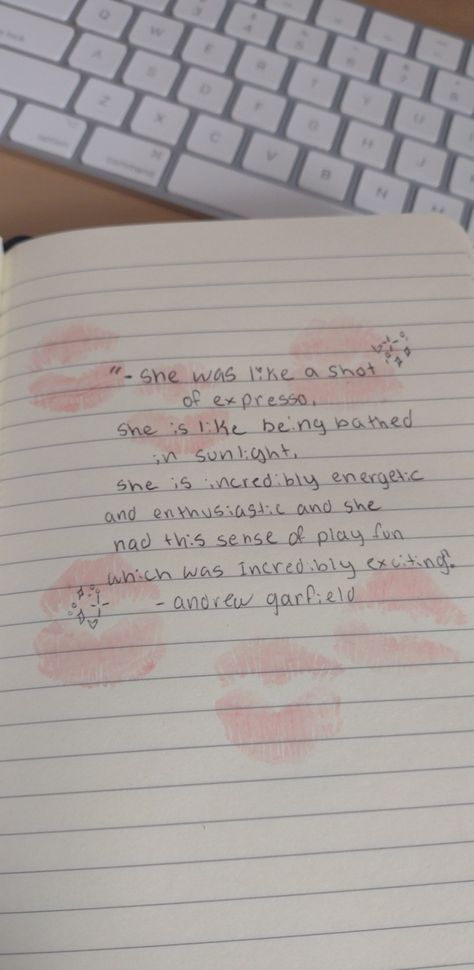 Q W E R T Y U
A S D F G H J
Z X C V B N M
option command
"- she was like a shot
of expresso.
she is like being bathed
in sunlight.
she is incredibly energetic
and enthusiastic and she
had this sense of play fun
which was incredibly exciting."
- andrew garfield